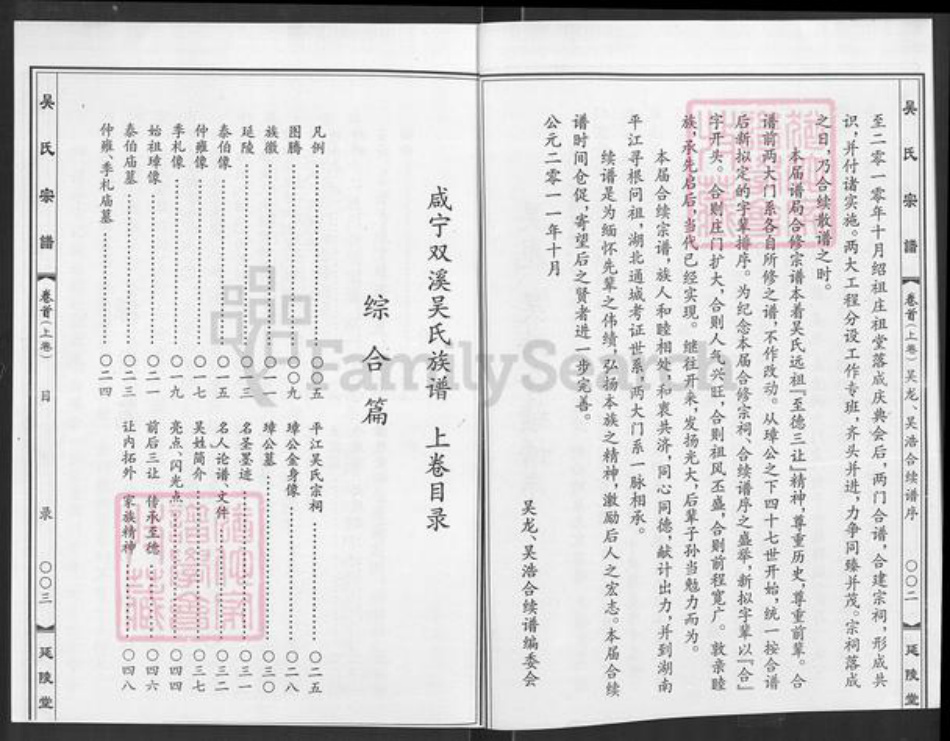 吴氏宗谱 卷首(上卷) 吴龙、吴浩合续谱序 〇〇二 延陵堂
至二零一零年十月绍祖庄祖堂落成庆典会后,两门合谱,合建宗祠,形成共
识,并付诸实施。两大工程分设工作专班,齐头并进,力争同臻并茂。宗祠落成
之日,乃合续散谱之时。
本届谱局合修宗谱本着吴氏远祖『至德三让』精神,尊重历史,尊重前辈。合
谱前两大门系各自所修之谱,不作改动。从璋公之下四十七世开始,统一按合谱
后新拟定的字辈排序。为纪念本届合修宗祠、合续谱序之盛举,新拟字辈以『合』
字开头。合则庄门扩大,合则人气兴旺,合则祖风丕盛,合则前程宽广。敦亲睦
族,承先启后,当代已经实现。继往开来,发扬光大,后辈子孙当勉力而为。
本届合续宗谱,族人和睦相处,和衷共济,同心同德,献计出力,并到湖南
平江寻根问祖,湖北通城考证世系,两大门系一脉相承。
续谱是为缅怀先辈之伟绩,弘扬本族之精神,激励后人之宏志。本届合续
谱时间仓促,寄望后之贤者进一步完善。
吴龙、吴浩合续谱编委会
公元二零一一年十月
咸宁双溪吴氏族谱 上卷目录
综合篇
凡例……〇〇五
图腾……〇〇九
族徽……〇一一
延陵……〇一三
泰伯像……〇一五
仲雍像……〇一七
季札像……〇一九
始祖璋像……〇二一
泰伯庙墓……〇二三
仲雍、季札庙墓……〇二四
平江吴氏宗祠……〇二五
璋公金身像……〇二八
璋公墓……〇三〇
名圣墨迹……〇三一
名人论谱、文件……〇三二
吴姓简介……〇三七
亮点、闪光点……〇四四
前后三让 传承至德……〇四六
让内拓外 家族精神……〇四八
吴氏宗谱 卷首(上卷) 目录 〇〇三 延陵堂
FamilySearch